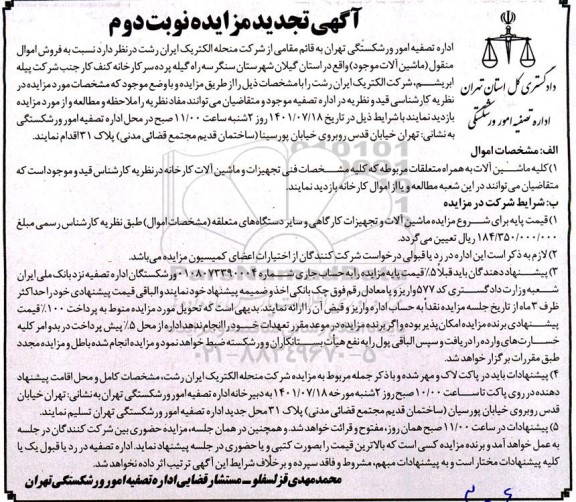 آگهی تجدید مزایده نوبت دوم
دادگستری کل استان تهران
اداره تصفیه امور ورشکستگی
اداره تصفیه امور ورشکستگی تهران به قائم مقامی از شرکت منحله الکتریک ایران رشت در نظر دارد نسبت به فروش اموال
منقول (ماشین آلات موجود) واقع در استان گیلان شهرستان سنگر سه راه گیله پرده سر کارخانه کنف کار جنب شرکت پیله
ابریشم، شرکت الکتریک ایران رشت را با مشخصات ذیل را از طریق مزایده و با وضع موجود که مشخصات مورد مزایده در
نظریه کارشناسی قید و نظریه در اداره تصفیه موجود و متقاضیان می‌توانند مفاد نظریه را ملاحظه و مطالعه و از مورد مزایده
بازدید نمایند با شرایط ذیل در تاریخ ۱۴۰۱/۰۷/۱۸ روز ۲شنبه ساعت ۱۱/۰۰ صبح در محل اداره تصفیه امور ورشکستگی
به نشانی: تهران خیابان قدس روبروی خیابان پورسینا (ساختمان قدیم مجتمع قضائی مدنی) پلاک ۳۱ اقدام نمایند.
الف: مشخصات اموال
۱) کلیه ماشین آلات به همراه متعلقات مربوطه که کلیه مشخصات فنی تجهیزات و ماشین آلات کارخانه در نظریه کارشناس قید و موجود است که
متقاضیان می‌توانند در این شعبه مطالعه و یا از اموال کارخانه بازدید نمایند.
ب: شرایط شرکت در مزایده
۱) قیمت پایه برای شروع مزایده ماشین آلات و تجهیزات کارگاهی و سایر دستگاه‌های متعلقه (مشخصات اموال) طبق نظریه کارشناس رسمی مبلغ
۱۸۴/۳۵۰/۰۰۰/۰۰۰ ریال تعیین می‌گردد.
۲) لازم به ذکر است این اداره در رد یا قبولی درخواست شرکت کنندگان از اختیارات اعضای کمیسیون مزایده می‌باشد.
۳) پیشنهاد دهندگان باید قبلا ۵٪ قیمت پایه مزایده را به حساب جاری شماره ورشکستگان اداره تصفیه نزد بانک ملی ایران
شعبه وزارت دادگستری کد ۵۷۷ واریز و یا معادل رقم فوق چک بانکی اخذ و ضمیمه پیشنهاد خود نمایند و الباقی قیمت پیشنهادی خود را حداکثر
ظرف ۳ ماه از تاریخ جلسه مزایده نقداً به حساب اداره واریز و قبض آن را ارائه نمایند. بدیهی است که تحویل مورد مزایده منوط به پرداخت ۱۰۰٪ قیمت
پیشنهادی برنده مزایده امکان پذیر بوده و اگر برنده مزایده در موعد مقرر تعهدات خود را انجام ندهد اداره از محل ۵٪ پیش پرداخت در بدو امر کلیه
خسارت‌های وارده را دریافت و سپس الباقی پول را به نفع هیأت بستانکاران و ورشکسته ضبط خواهد نمود و مزایده انجام شده باطل و مزایده مجدد
طبق مقررات برگزار خواهد شد.
۴) پیشنهادات باید در پاکت لاک و مهر شده و با ذکر جمله مربوط به مزایده شرکت منحله الکتریک ایران رشت، مشخصات کامل و محل اقامت پیشنهاد
دهنده در روی پاکت تا ساعت ۱۰/۰۰ صبح روز ۲شنبه مورخه ۱۴۰۱/۰۷/۱۸ به دبیرخانه اداره تصفیه امور ورشکستگی تهران به نشانی: تهران خیابان
قدس روبروی خیابان پورسیان (ساختمان قدیم مجتمع قضائی مدنی) پلاک ۳۱ محل جدید اداره تصفیه امور ورشکستگی تهران تسلیم نمایند.
۵) پیشنهادات در ساعت ۱۱/۰۰ صبح همان روز، مفتوح و قرائت خواهد شد. و همچنین در همان جلسه، مزایده حضوری بین شرکت کنندگان در جلسه
به عمل خواهد آمد و برنده مزایده کسی است که بالاترین قیمت را بصورت کتبی و یا حضوری در جلسه پیشنهاد نماید. اداره تصفیه در رد یا قبول یک یا
کلیه پیشنهادات مختار است و به پیشنهادات مبهم، مشروط و فاقد سپرده و برخلاف شرایط این آگهی ترتیب اثر داده نخواهد شد.
محمدمهدی قزلسفلو - مستشار قضایی اداره تصفیه امور ورشکستگی تهران